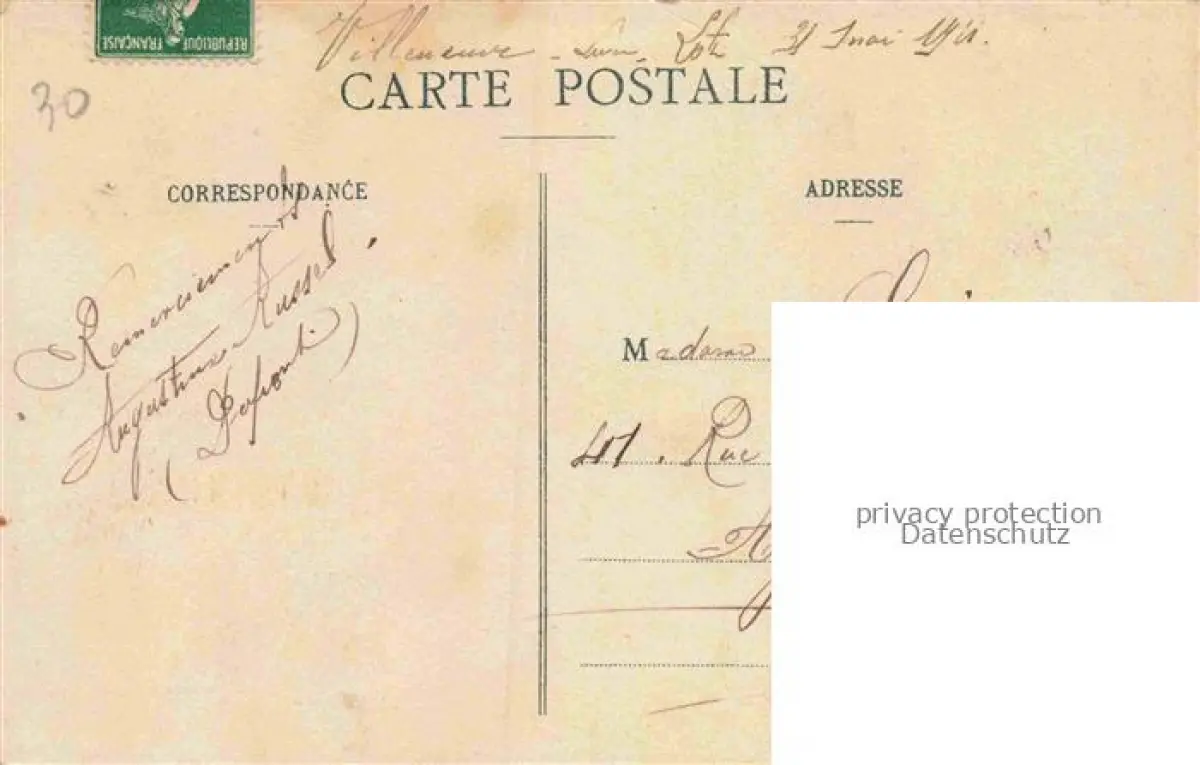 RÉPUBLIQUE FRANÇAISE
Villeneuve - sur - Lot 31 mai 1911.
CARTE POSTALE
30
CORRESPONDANCE
Remerciements
Augustine Russel.
(Lafront)
ADRESSE
Madame
41, Rue
privacy protection
Datenschutz